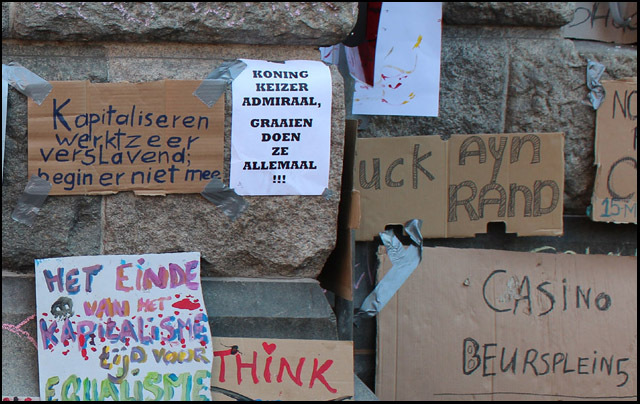 Kapitaliseren
werkt zeer
verslavend;
begin er niet mee
KONING
KEIZER
ADMIRAAL,
GRAAIEN
DOEN
ZE
ALLEMAAL
!!!
UCK
AYN
RAND
NO
15-M
HET EINDE
VAN HET
KAPITALISME
tijd voor
EQUALISME
THINK
CASINO
BEURSPLEIN 5